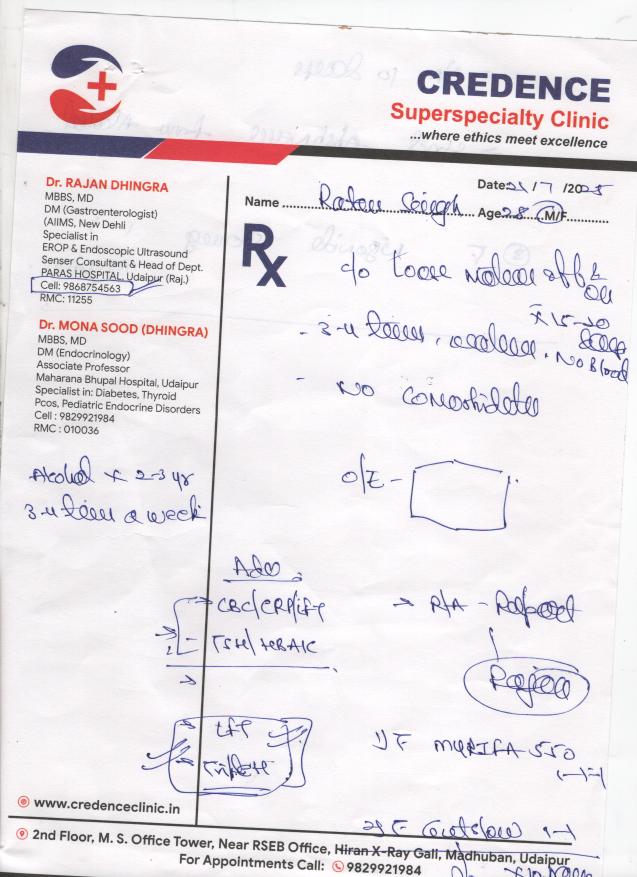 CREDENCE
Superspecialty Clinic
...where ethics meet excellence
Dr. RAJAN DHINGRA
MBBS, MD
DM (Gastroenterologist)
(AIIMS, New Dehli
Specialist in
EROP & Endoscopic Ultrasound
Senser Consultant & Head of Dept.
PARAS HOSPITAL, Udaipur (Raj.)
Cell: 9868754563
RMC: 11255
Dr. MONA SOOD (DHINGRA)
MBBS, MD
DM (Endocrinology)
Associate Professor
Maharana Bhupal Hospital, Udaipur
Specialist in: Diabetes, Thyroid
Pcos, Pediatric Endocrine Disorders
Cell : 9829921984
RMC : 010036
Alcohol x 2-3 yr
3-4 times a week
Date: 21/7/2025
Name Ratan Singh Age 28 M/F
Rx
c/o loose motion off &
on
x 15-20
days
- 3-4 times, No Blood
- No comorbidities
O/E -
Adv
CBC/CRP/LFT
TSH/HBA1C
LFT
→ R/A -
1) T
550
2) T
www.credenceclinic.in
2nd Floor, M. S. Office Tower, Near RSEB Office, Hiran X-Ray Gali, Madhuban, Udaipur
For Appointments Call: 9829921984